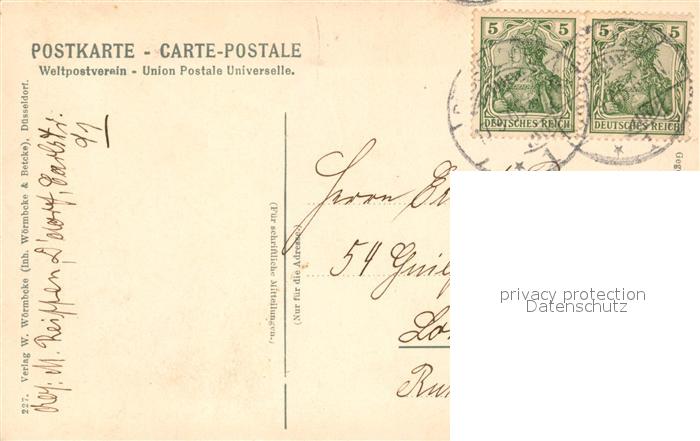 POSTKARTE - CARTE-POSTALE
Weltpostverein - Union Postale Universelle.
5 5
5 5
DEUTSCHES REICH
DEUTSCHES REICH
227. Verlag W. Wörmbcke (Inh. Wörmbcke & Betcke), Düsseldorf.
M. D'dorf,
91
(Für schriftliche Mitteilungen.)
(Nur für die Adresse.)
Herrn
54 Guil
Lo
privacy protection
Datenschutz